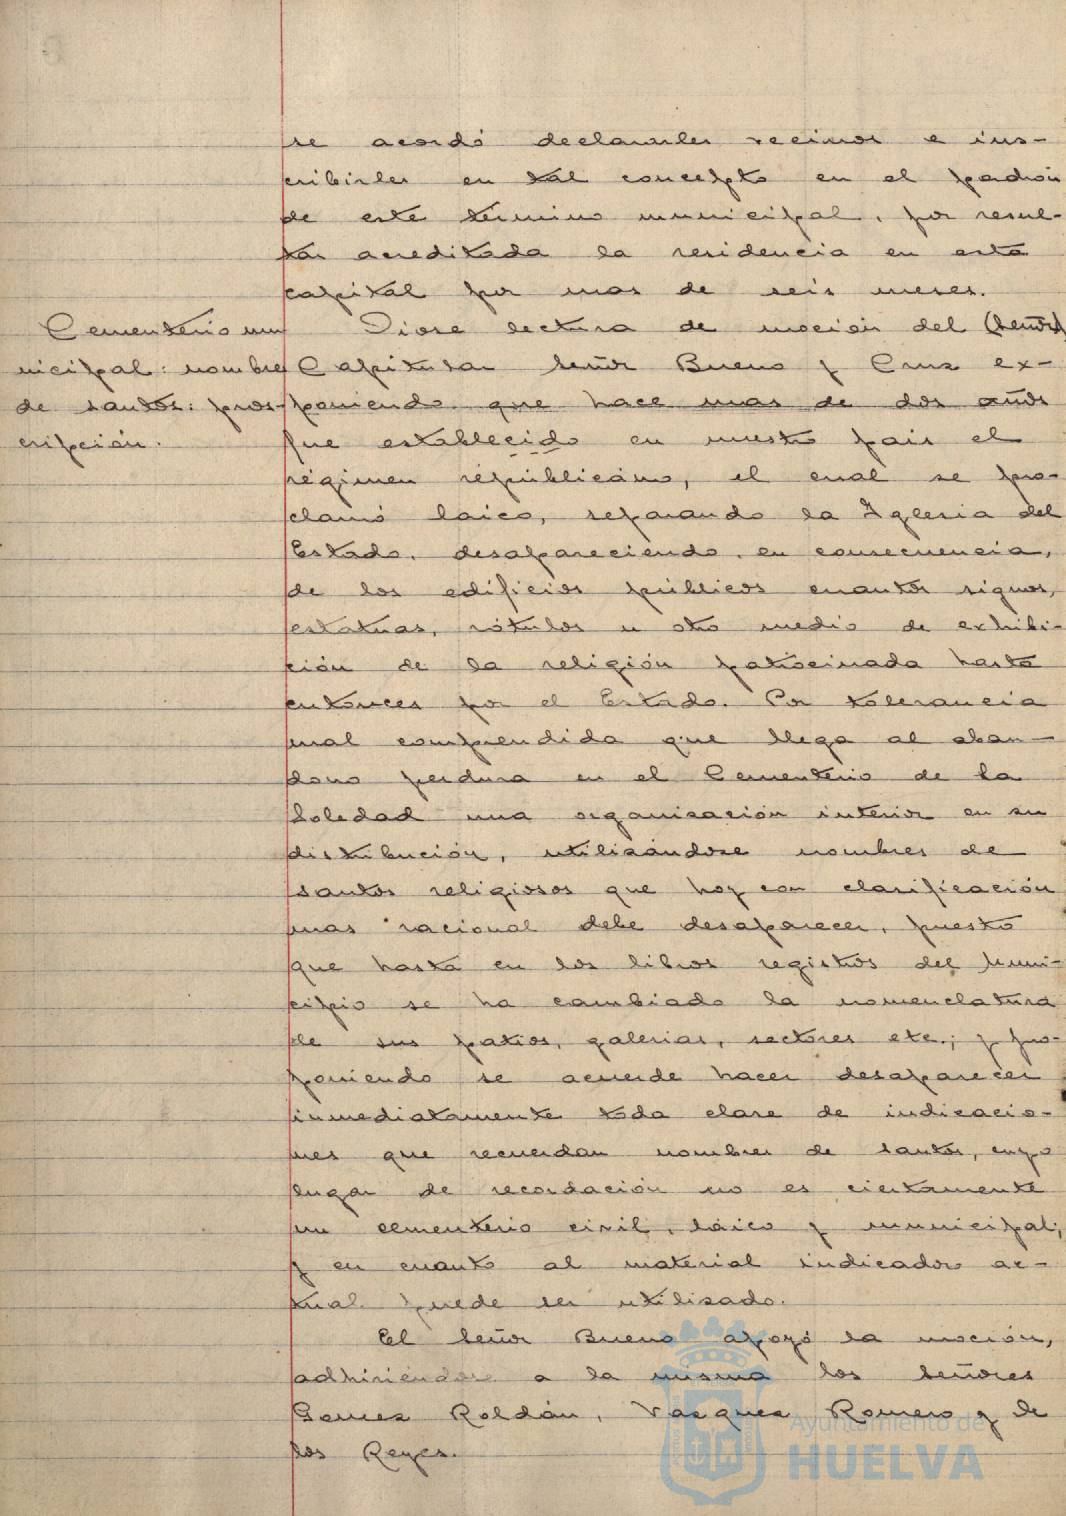 se acordó declararles vecinos e ins-
cribirles en tal concepto en el padrón
de este término municipal, por resul-
tar acreditada la residencia en esta
capital por mas de seis meses.
Cementerio mu
nicipal: nombre
de santos: pros-
cripción.
Diose lectura de moción del (señor)
Capitular señor Bueno y Cruz ex-
poniendo que hace mas de dos años
fue establecido en nuestro pais el
régimen républicáno, el cual se pro-
clamó laico, separando la Iglesia del
Estado, desapareciendo, en consecuencia,
de los edificios públicos cuantos signos,
estatuas, rótulos u otro medio de exhibi-
ción de la religión patrocinada hasta
entonces por el Estado. Por tolerancia
mal comprendida que llega al aban-
dono perdura en el Cementerio de la
Soledad una organización interior en su
distribución, utilizándose nombres de
santos religiosos que hoy con clasificación
mas racional debe desaparecer, puesto
que hasta en los libros registros del Muni-
cipio se ha cambiado la nomenclatura
de sus patios, galerias, sectores etc.; y pro-
poniendo se acuerde hacer desaparecer
inmediatamente toda clase de indicacio-
nes que recuerdan nombres de santos, cuyo
lugar de recordación no es ciertamente
un cementerio civil, láico y municipal;
y en cuanto al material indicador ac-
tual puede ser utilizado.
El señor Bueno apoyó la moción,
adhiriéndose a la misma los señores
Gomez Roldán, Vazquez Romero y de
los Reyes.
Ayuntamiento de
HUELVA